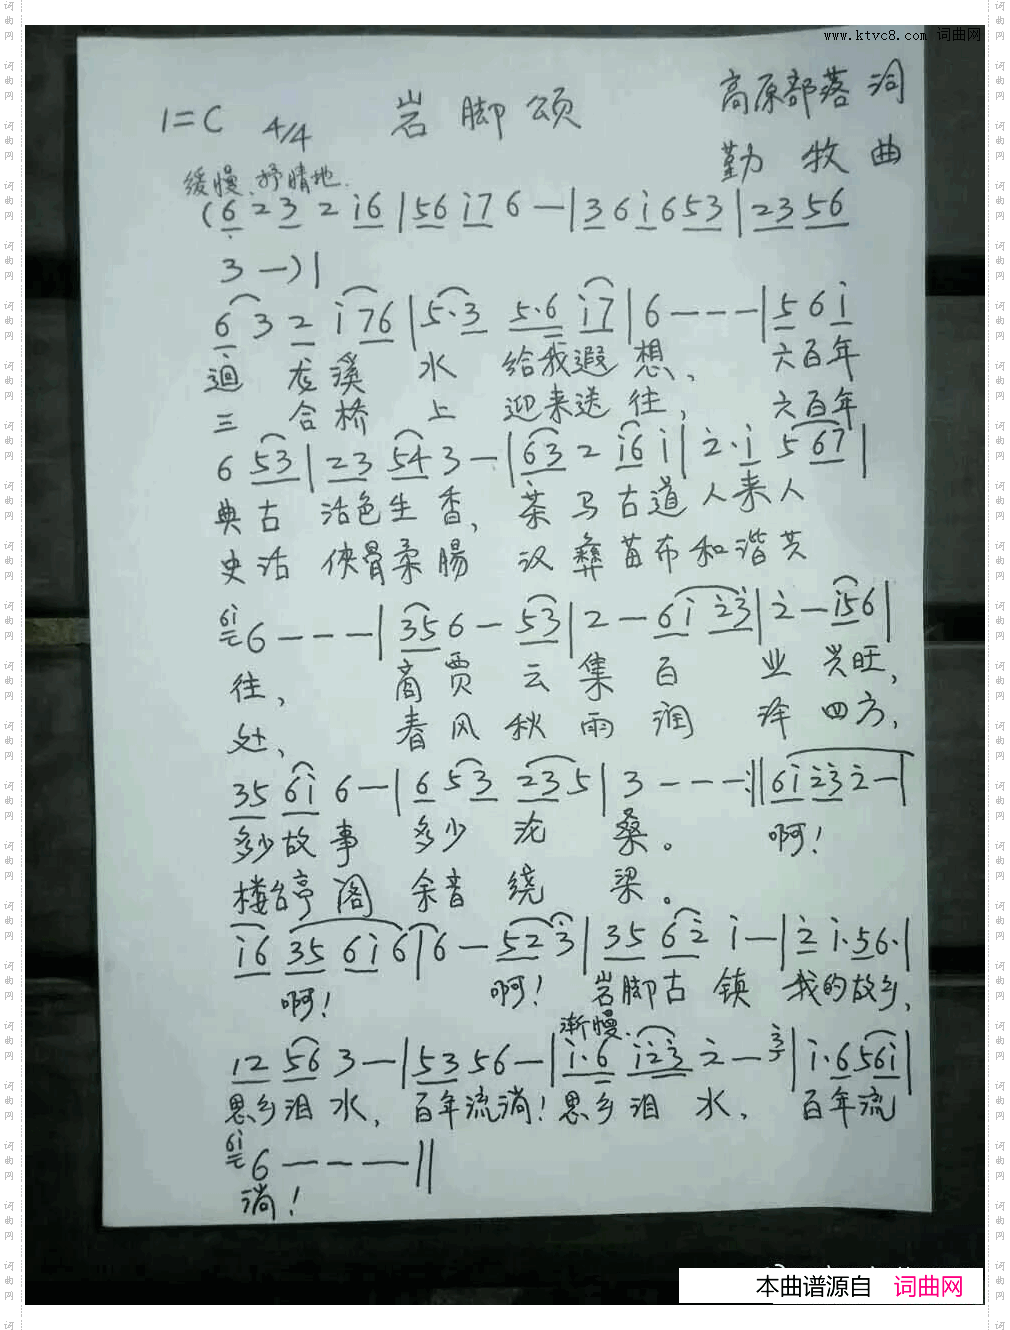 www.ktvc8.com 词曲网
1=C 4/4 岩脚颂 高原部落 词
勤牧 曲
缓慢、抒情地.
(6 2 3 2 i6|56 i7 6 —|3 6 i 6 53|23 56
3 —)|
6 3 2 i 76|5·3 5·6 i7|6 — — —|5 6 i
迴龙溪水 给我遐想、 六百年
三合桥上 迎来送往, 六百年
6 53|23 54 3 —|63 2 i6 i|2·i 5 67|
典古 活色生香, 茶马古道人来人
史话 侠骨柔腸 汉彝苗布和谐共
6i 6 — — —|35 6 — 53|2 — 6i 23|2 — i5 6|
往, 商贾云集百 业兴旺,
处, 春风秋雨润 泽四方,
35 6i 6 —|6 5 3 23 5|3 — — —:‖6i 23 2 —|
多少故事 多少沧桑。 啊!
楼台亭阁 余音绕梁。
i6 35 6i 6|6 — 52 3|35 62 i —|2 i·56·|
啊! 啊! 岩脚古镇 我的故乡,
渐慢.
12 56 3 —|53 56 —|i·6 i23 2 — 3|i·6 56i|
思乡泪水, 百年流淌! 思乡泪水, 百年流
6i 6 — — —‖
淌!
本曲谱源自 词曲网